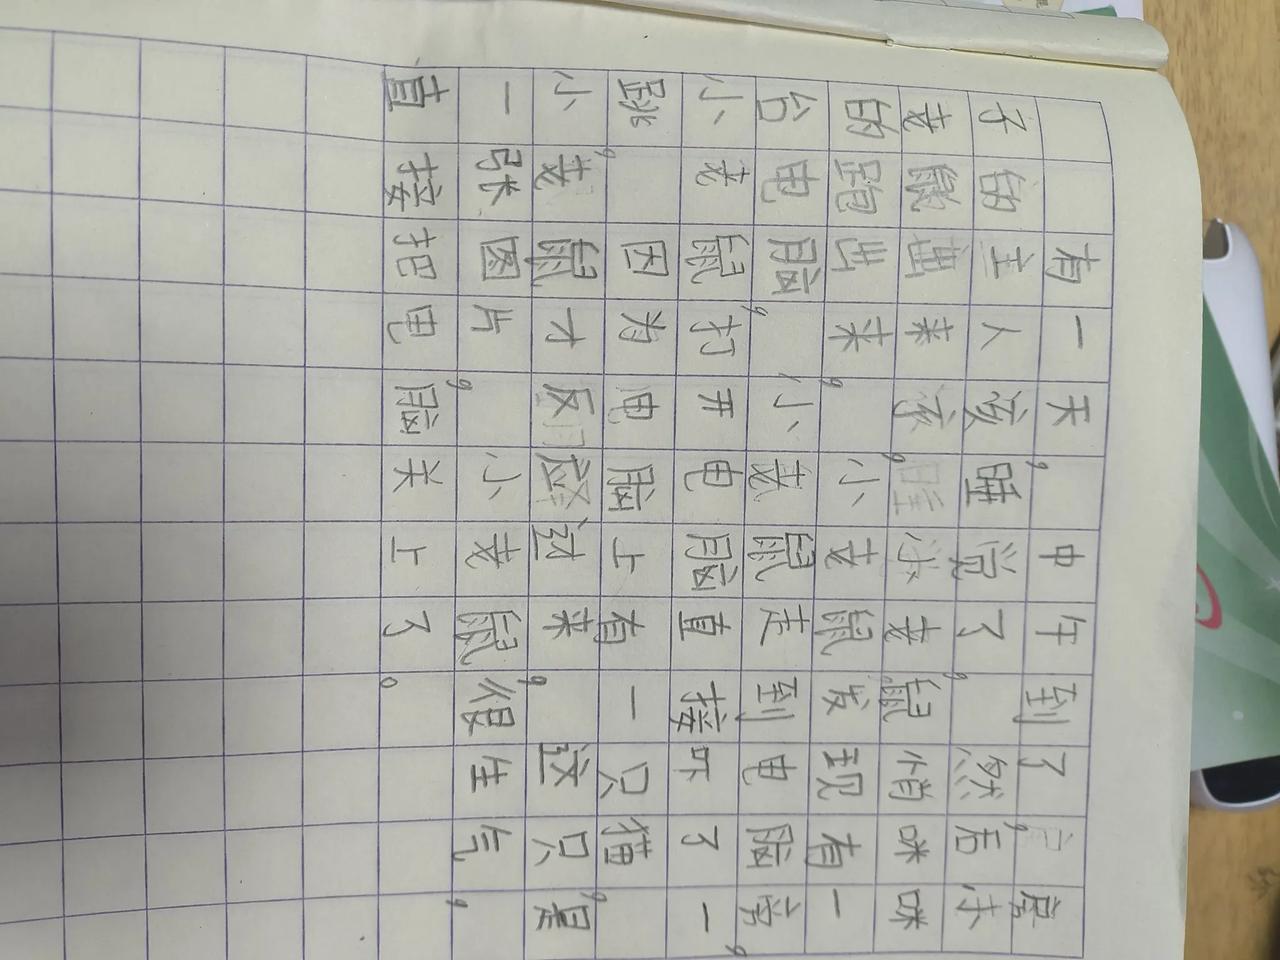 有一天，中午到了，房
子的主人该睡觉了，然后
老鼠来该，小老鼠悄咪咪
的跑出来，小老鼠发现有一
台电脑，小老鼠走到电脑旁，
小老鼠打开电脑直接吓了一
跳，因为电脑上有一只猫，
小老鼠才反应过来，这只是
一张图片，小老鼠很生气，
直接把电脑关上了。